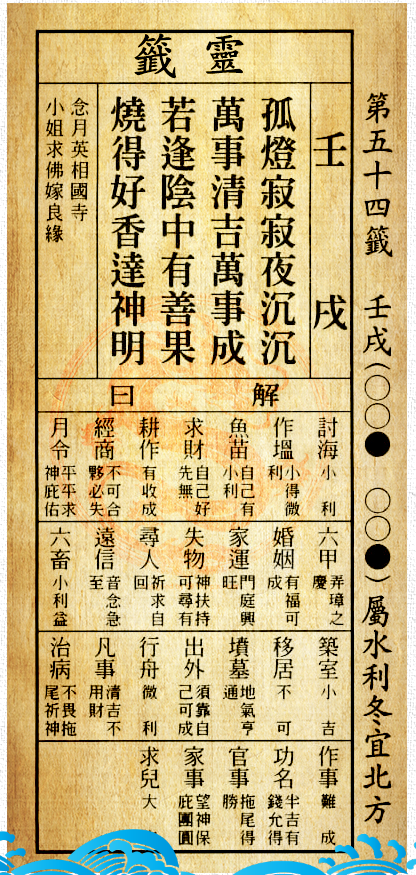 第五十四籤 壬戌(○○● ○○●)屬水利冬宜北方
靈籤
壬戌
孤燈寂寂夜沉沉
萬事清吉萬事成
若逢陰中有善果
燒得好香達神明
念月英相國寺
小姐求佛嫁良緣
解曰
討海 小利
作塭 小得微利
魚苗 自己有小利
求財 自己好先無
耕作 有收成
經商 不可合夥必失
月令 平平求神庇佑
六甲 弄璋之慶
婚姻 有福可成
家運 門庭興旺
失物 神扶持可尋有
尋人 祈求自回
遠信 音念急至
六畜 小利益
築室 小吉
移居 不可
墳墓 地氣亨通
出外 須靠自己可成
行舟 微利
凡事 清吉不用財
治病 不畏拖尾祈神
作事 難成
功名 半吉有錢允得
官事 拖尾得勝
家事 望神保庇團圓
求兒 大